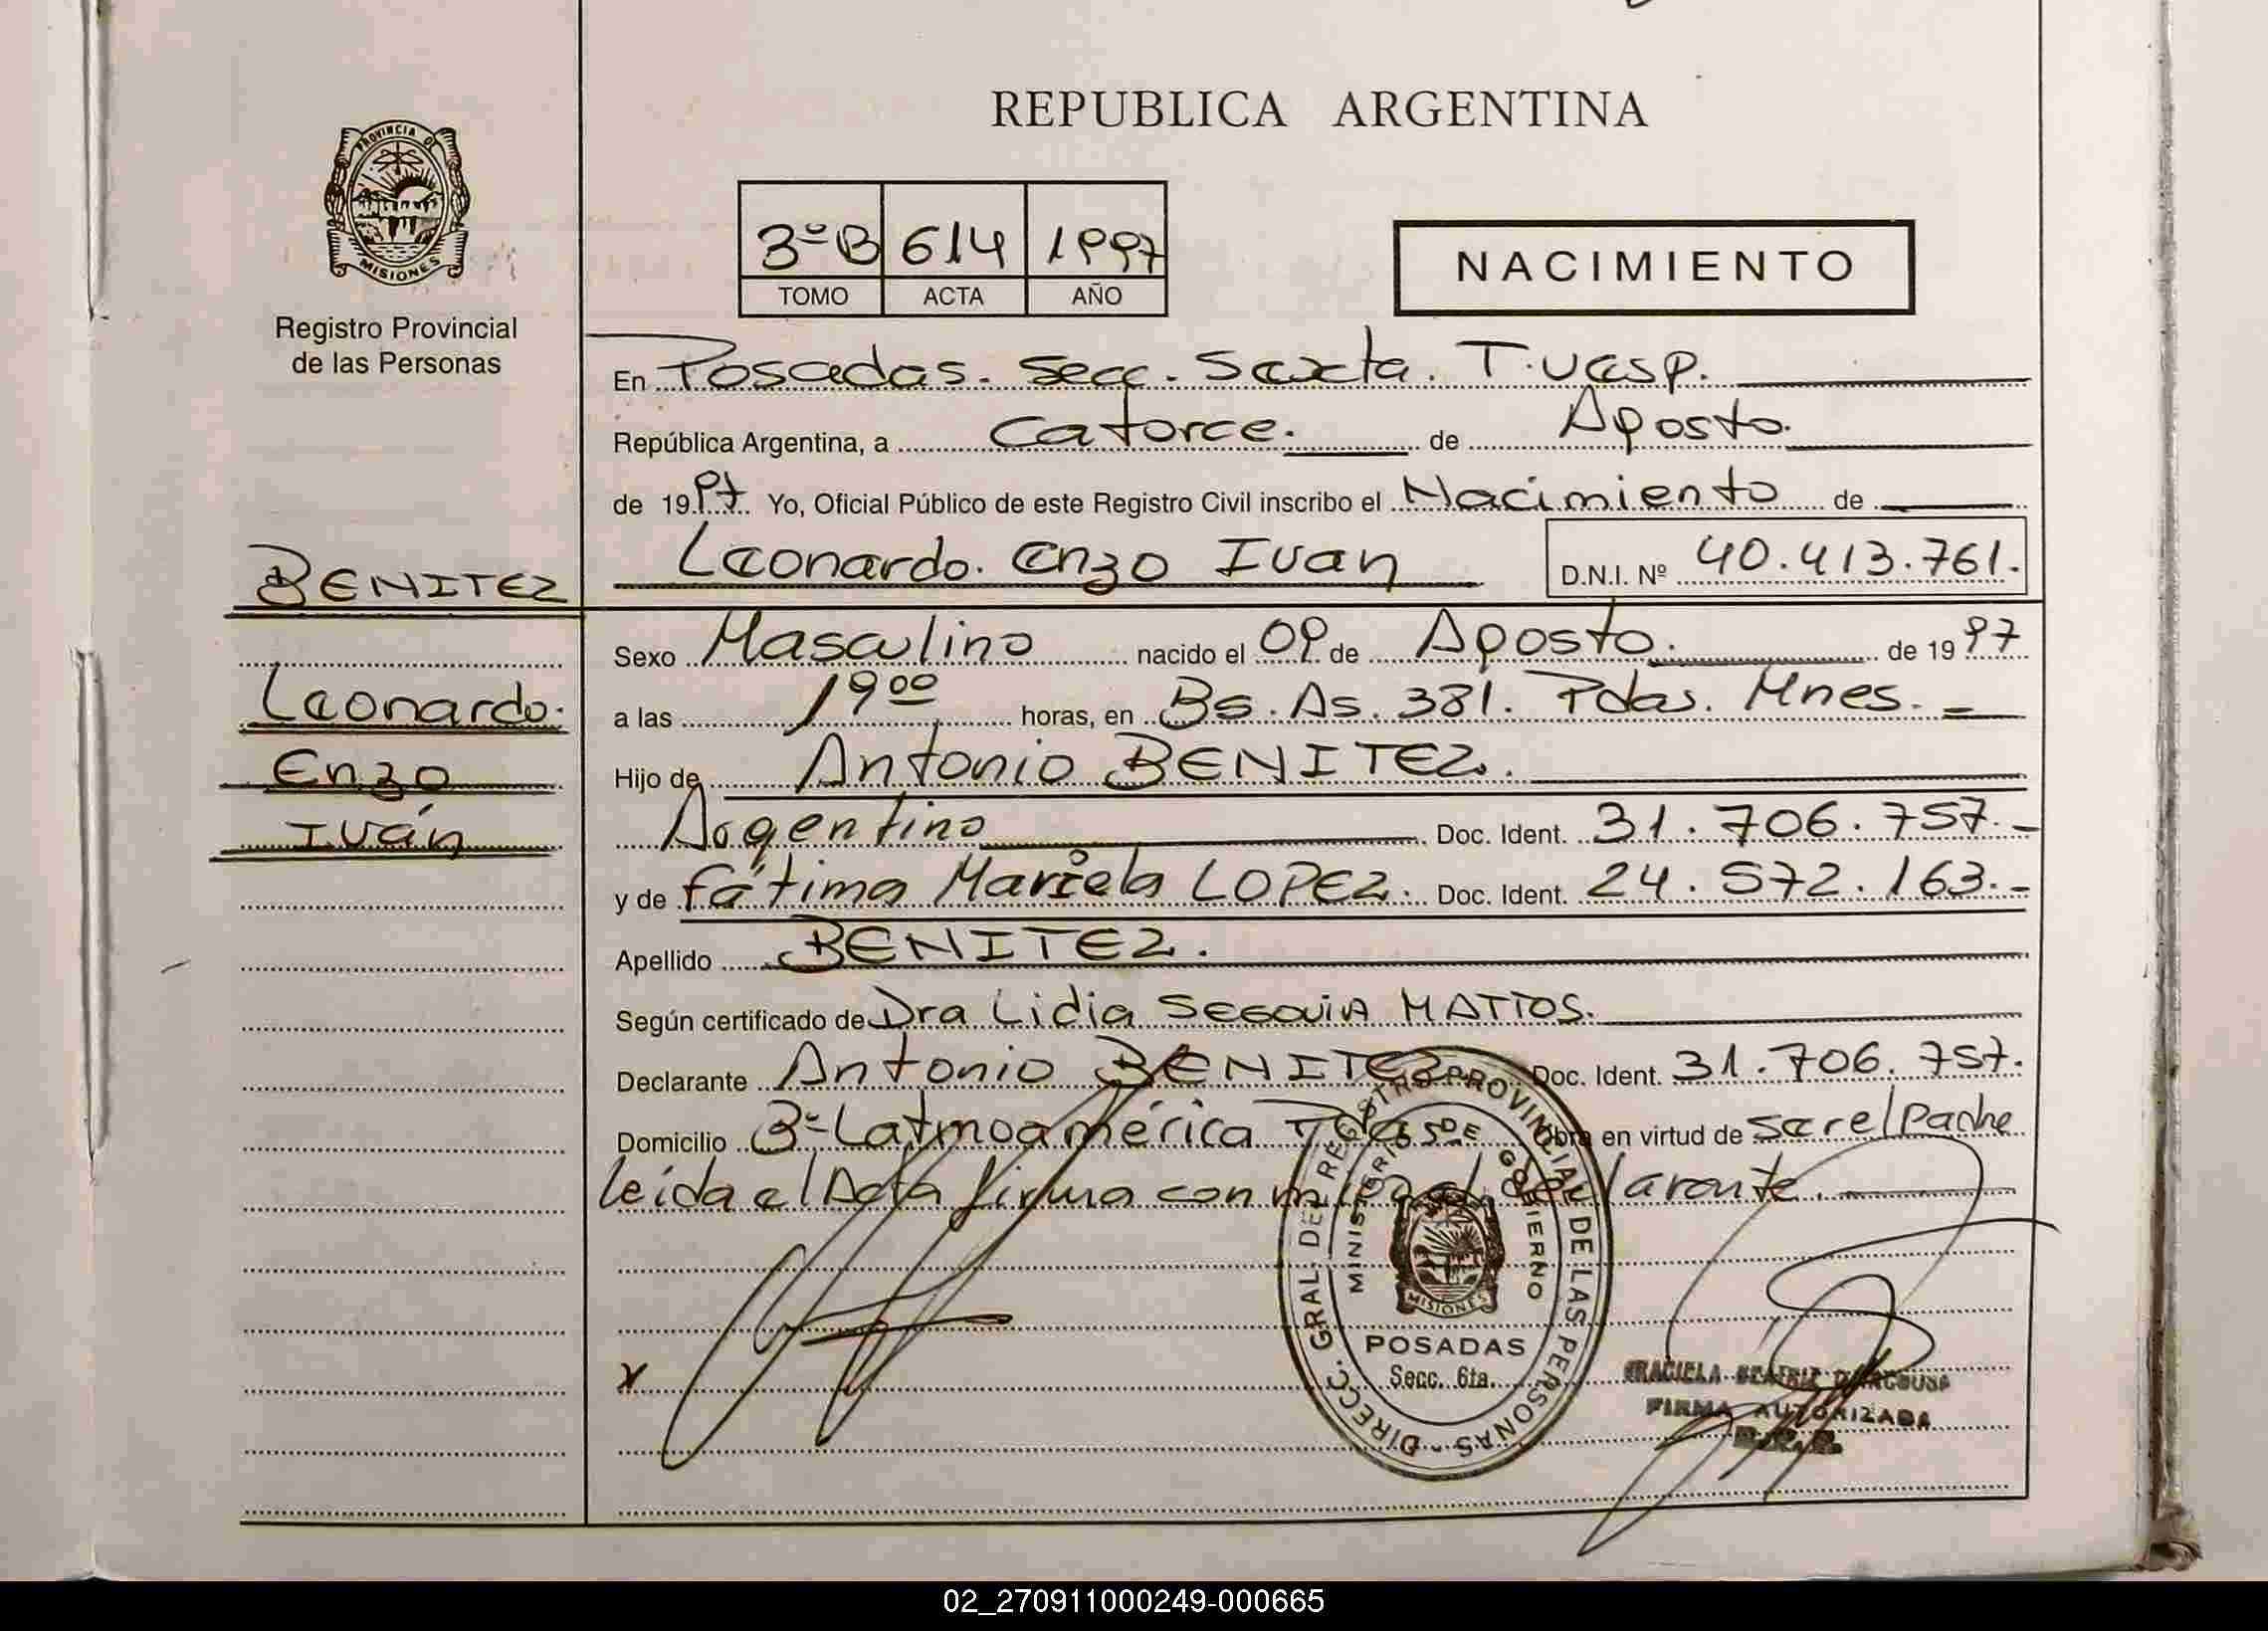 REPUBLICA ARGENTINA
PROVINCIA DE
MISIONES
Registro Provincial
de las Personas
3º B 614 1997
TOMO ACTA AÑO
NACIMIENTO
En Posadas. Secc. Sexta. T. Vesp.
República Argentina, a Catorce. de Agosto.
de 1997 Yo, Oficial Público de este Registro Civil inscribo el Nacimiento de
Leonardo. Enzo Ivan D.N.I. Nº 40.413.761.
BENITEZ
Leonardo.
Enzo
Iván
Sexo Masculino nacido el 09 de Agosto. de 1997
a las 19 00 horas, en Bs. As. 381. Pdas. Mnes.
Hijo de Antonio BENITEZ.
Argentino Doc. Ident. 31.706.757.-
y de Fátima Mariela LOPEZ. Doc. Ident. 24.572.163.-
Apellido BENITEZ.
Según certificado de Dra Lidia SEGOVIA MATTOS.
Declarante Antonio BENITEZ Doc. Ident. 31.706.757.
Domicilio 3º Latinoamérica Pdas Obra en virtud de ser el Padre
leída el Acta firma conmigo el declarante.
DIRECC. GRAL. DEL REGISTRO PROVINCIAL DE LAS PERSONAS
MINISTERIO DE GOBIERNO
MISIONES
POSADAS
Secc. 6ta.
x
GRACIELA BEATRIZ
FIRMA AUTORIZADA
02_270911000249-000665